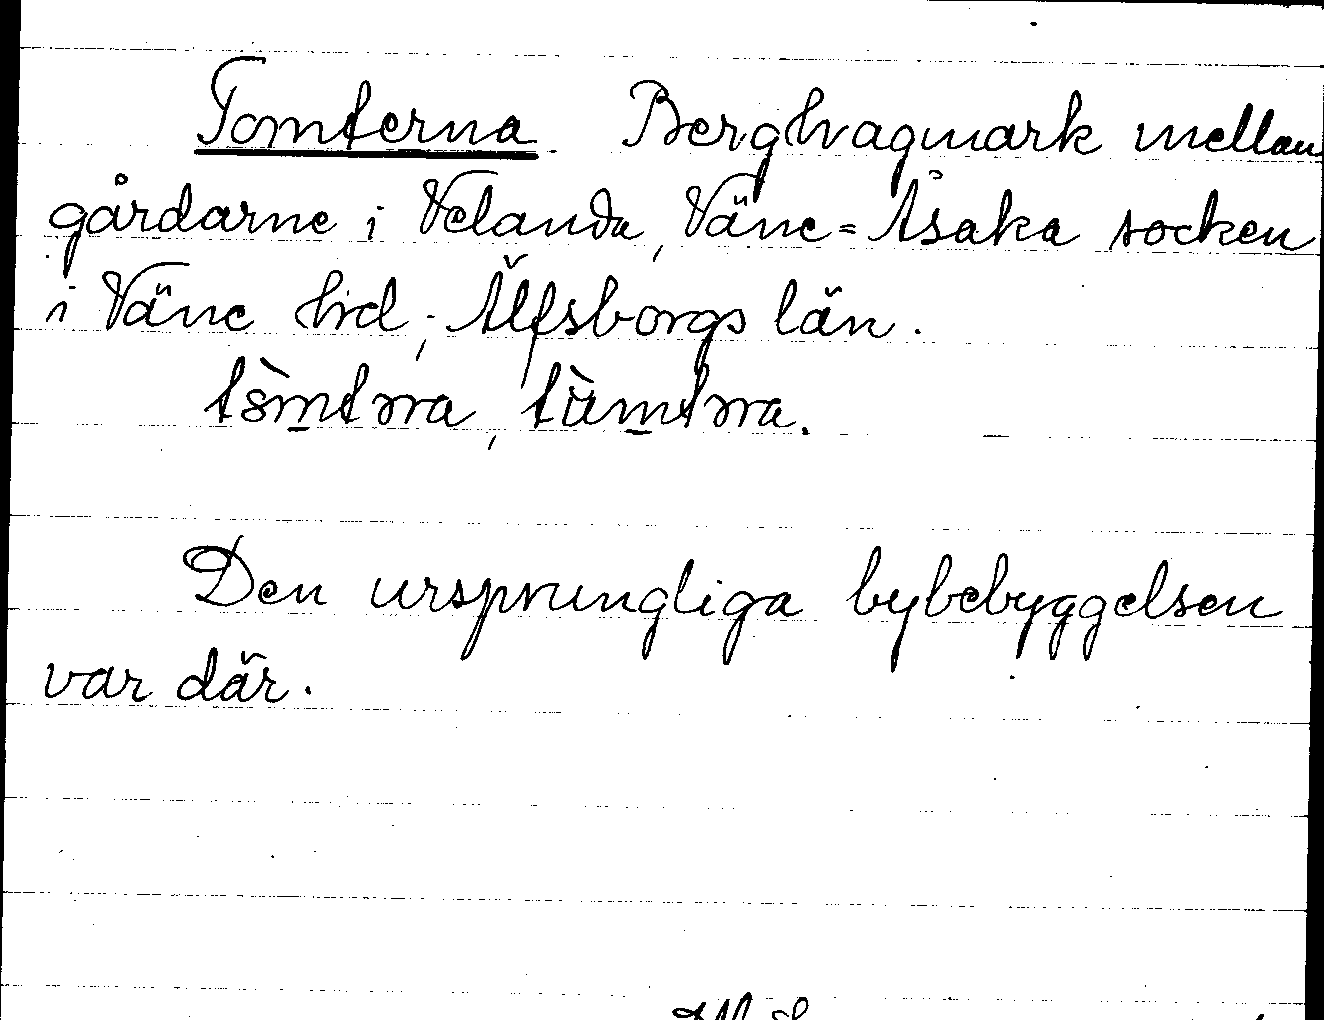 Tomterna. Berghvagmark mellan
gårdarne i Velanda, Väne=Åsaka socken
i Väne hrd, Älfsborgs län.
Den ursprungliga bybebyggelsen
var där.